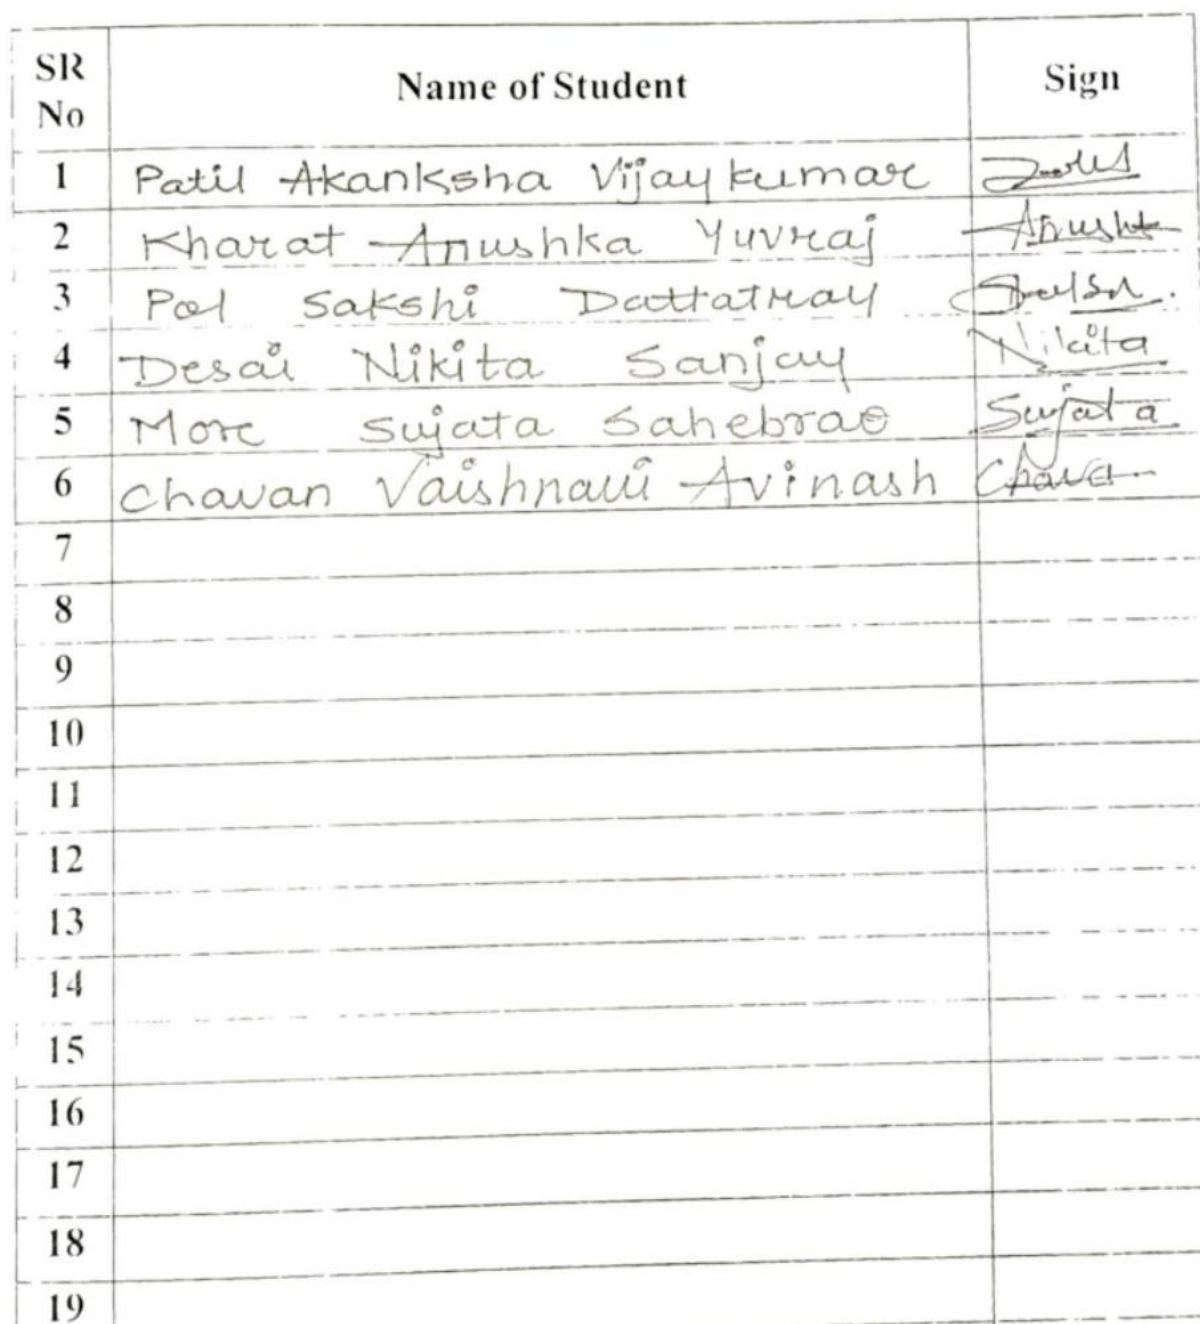 SR No Name of Student Sign
1 Patil Akanksha Vijaykumar
2 Kharat Anushka Yuvraj
3 Pol Sakshi Dattatray
4 Desai Nikita Sanjay Nikita
5 More Sujata Sahebrao Sujata
6 Chavan Vaishnavi Avinash
7
8
9
10
11
12
13
14
15
16
17
18
19